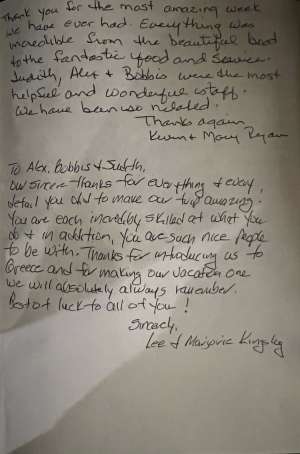 Thank you for the most amazing week
we have ever had. Everything was
incredible from the beautiful boat
to the fantastic food and service.
Judith, Alex & Bobbis were the most
helpful and wonderful staff.
We have been so
Thanks again,
& Mary Ryan
To Alex, Bobbis & Judith,
Our sincere thanks for everything & every
detail you did to make our trip amazing.
You are each incredibly skilled at what you
do & in addition, you are such nice people
to be with. Thanks for introducing us to
Greece and for making our vacation one
we will absolutely always remember.
Best of luck to all of you!
Sincerely,
Lee & Marjorie Kingsley